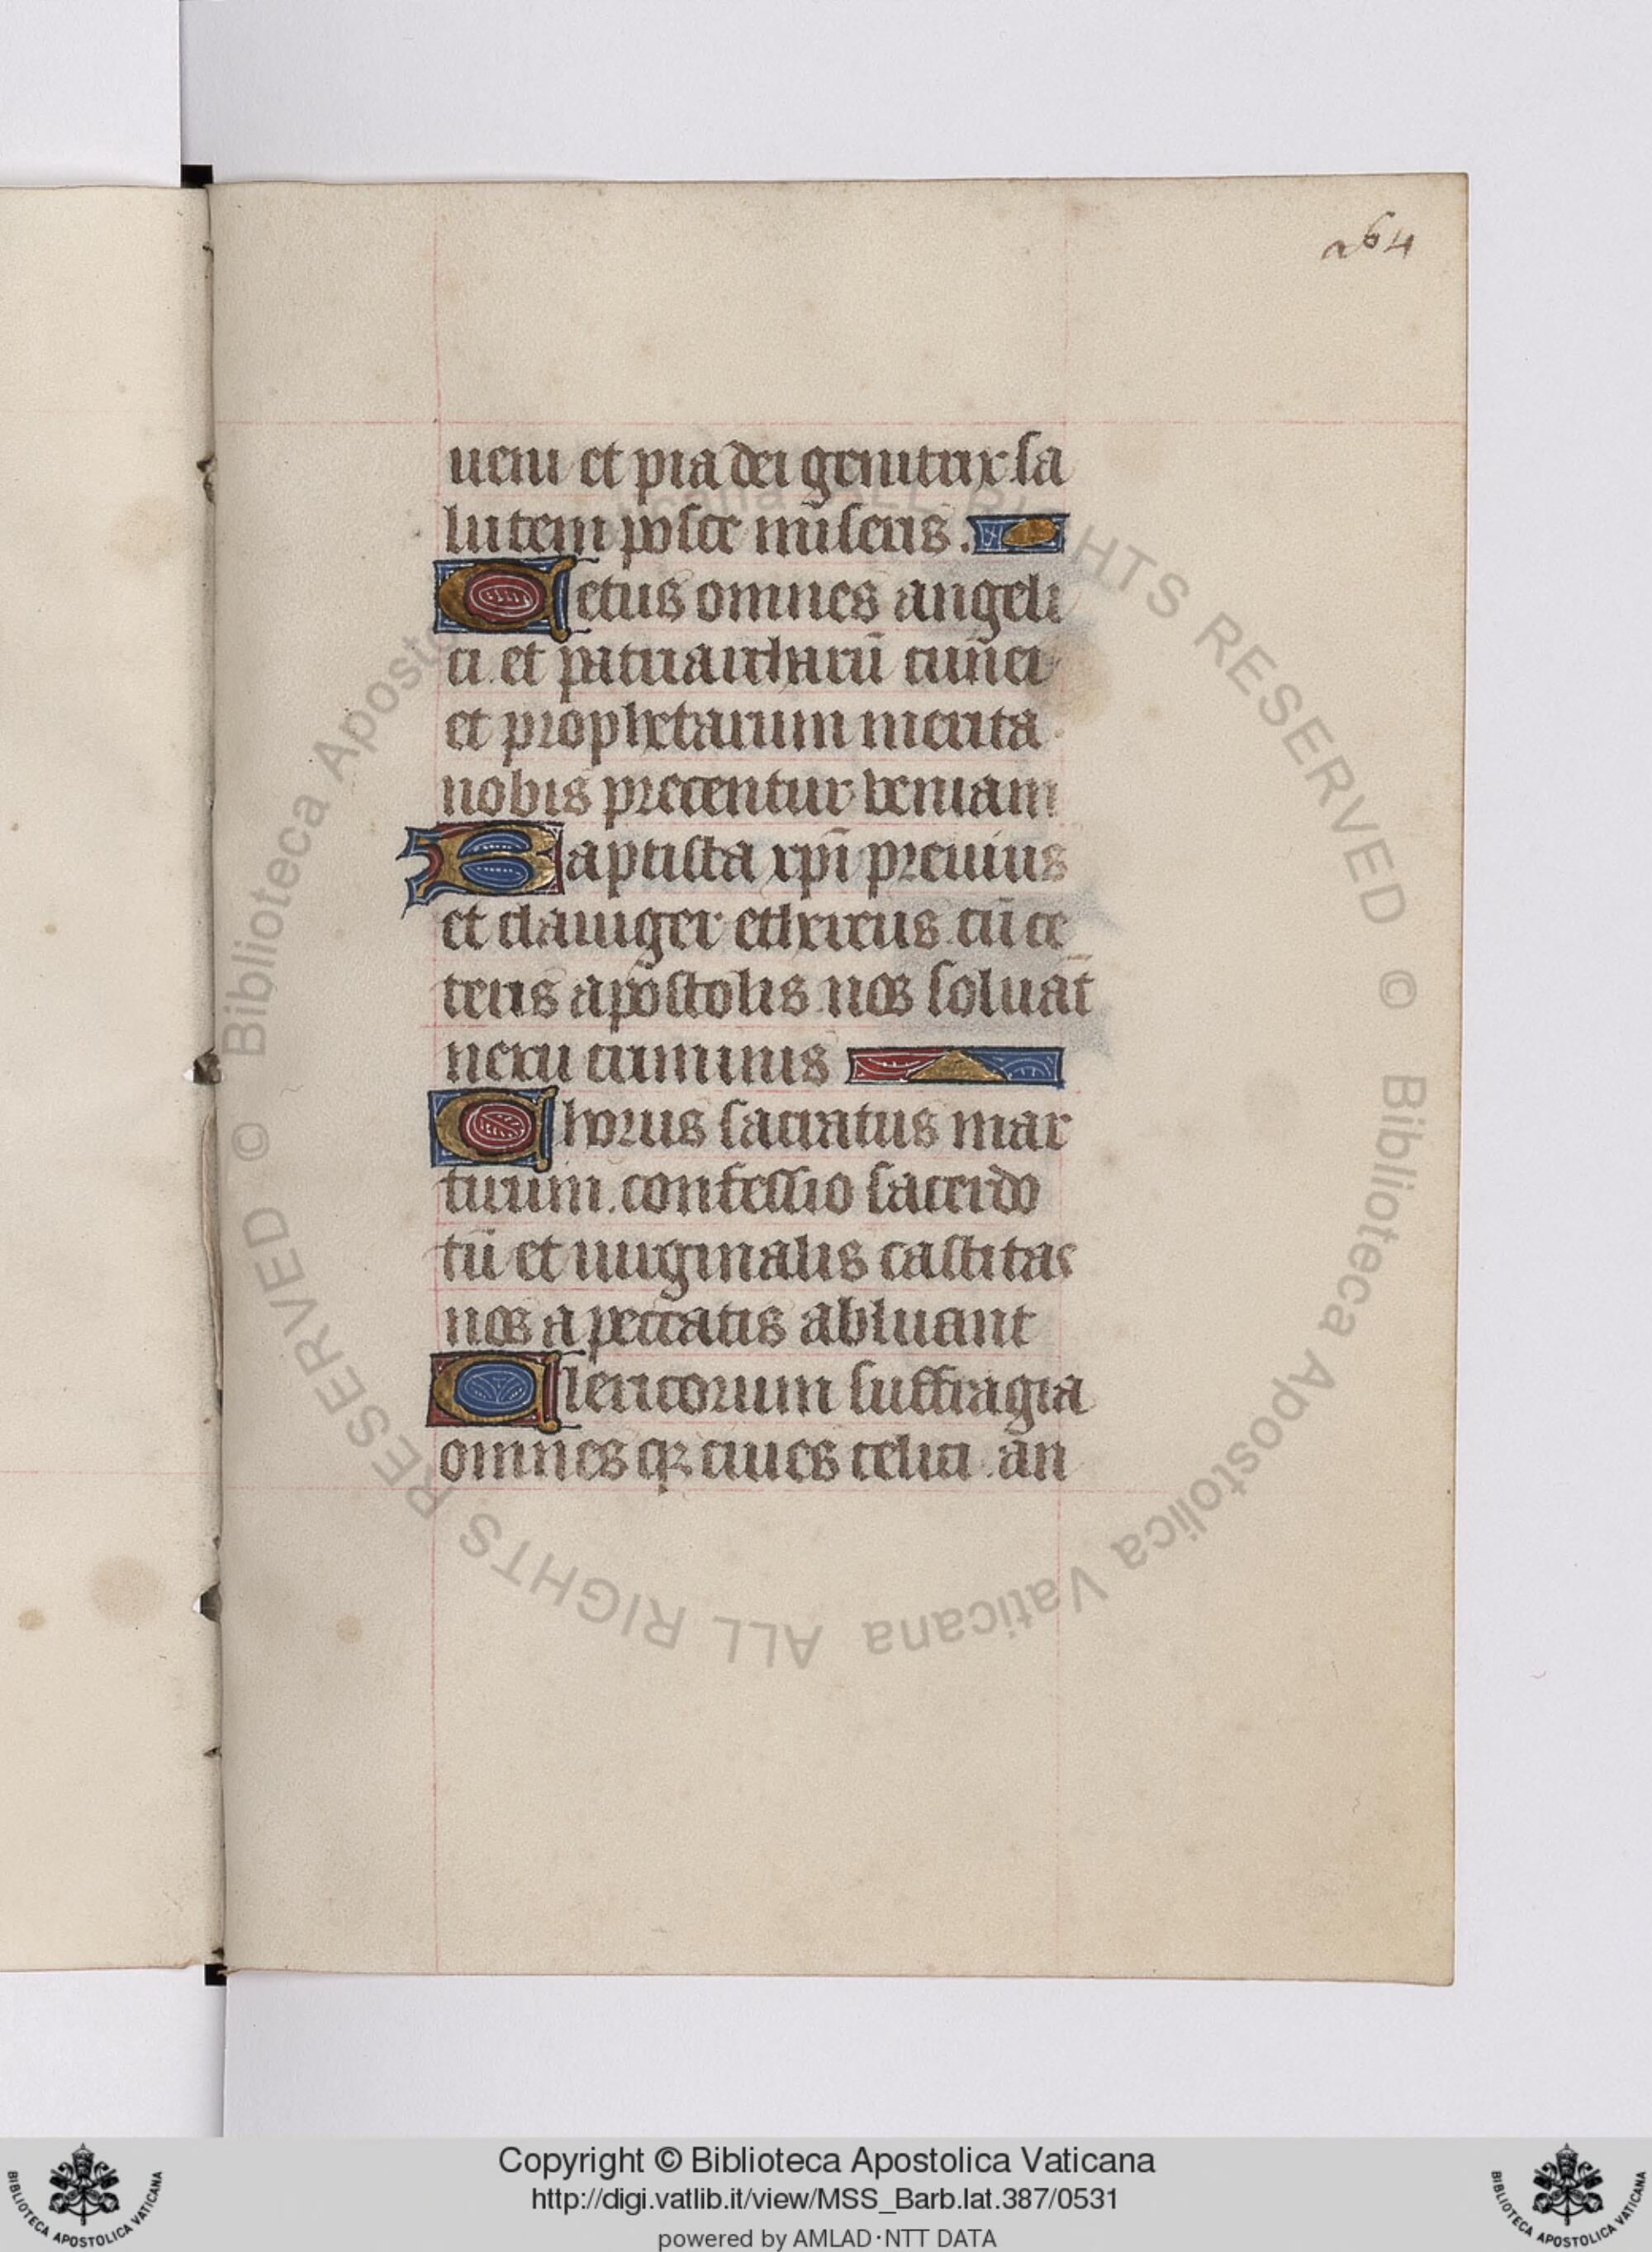 264
ueni et pia dei genitrix sa
lutem posce miseris.
Cetus omnes angeli
ci. et patriarcharū cunei
et prophetarum merita
nobis precentur veniam
Baptista xpī preuius
et clauiger ethereus. cū ce
teris apostolis nos soluāt
nexu criminis
Chorus sacratus mar
tirum. confessio sacerdo
tū et uirginalis castitas
nos a peccatis abluant
Clericorum suffragia
omnes qꝫ ciues celici. an
© Biblioteca Apostolica Vaticana ALL RIGHTS RESERVED © Biblioteca Apostolica Vaticana ALL RIGHTS RESERVED
Copyright © Biblioteca Apostolica Vaticana
http://digi.vatlib.it/view/MSS_Barb.lat.387/0531
powered by AMLAD·NTT DATA
BIBLIOTECA APOSTOLICA VATICANA
BIBLIOTECA APOSTOLICA VATICANA